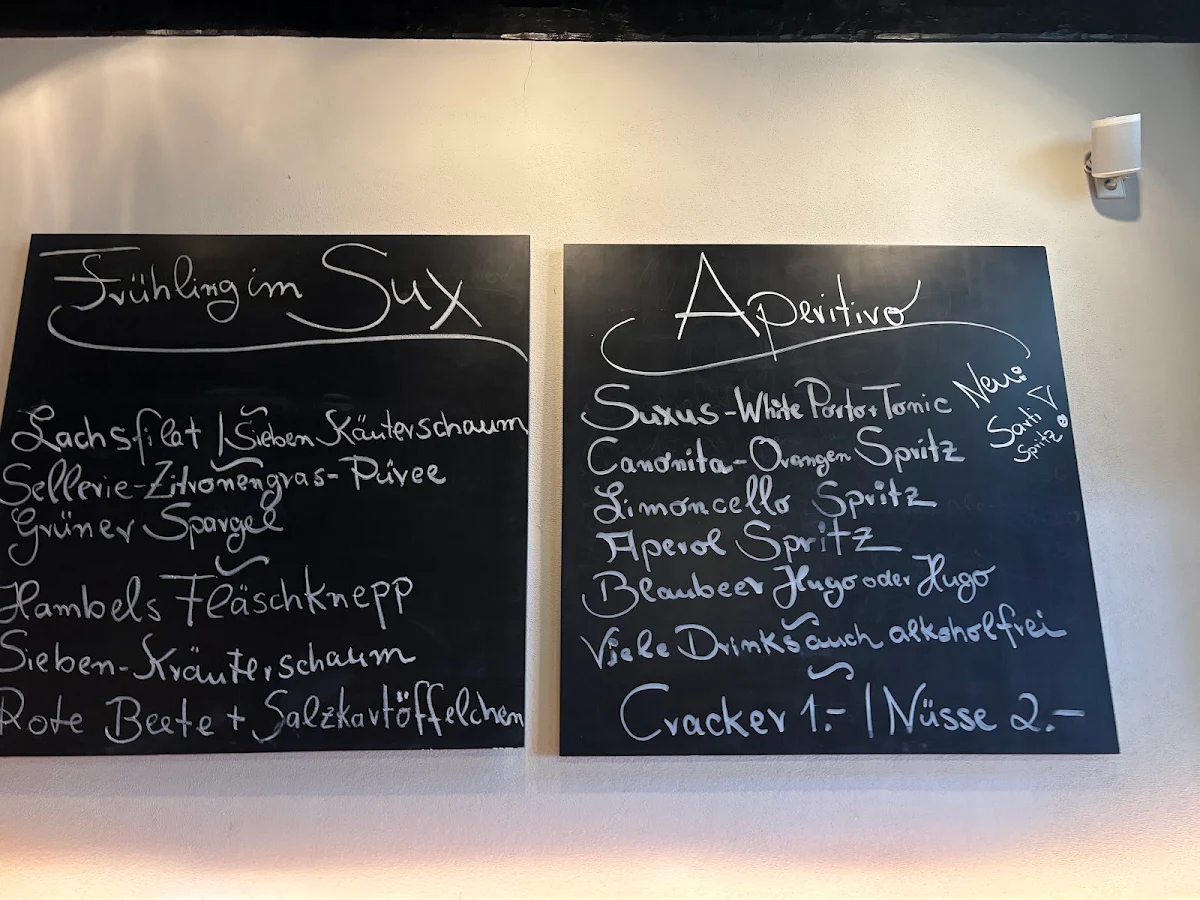 Frühling im Sux
Lachsfilat | Sieben Käuterschaum
Sellerie-Zitronengras-Püree
Grüner Spargel
Hambels Fläschknepp
Sieben-Kräuterschaum
Rote Beete + Salzkartöffelchen
Aperitivo
Suxus-White Porto+Tonic
Canonita-Orangen Spritz
Limoncello Spritz
Aperol Spritz
Blaubeer Hugo oder Hugo
Viele Drinks auch alkoholfrei
Cracker 1.- | Nüsse 2.-
Neu:
Sarti
Spritz